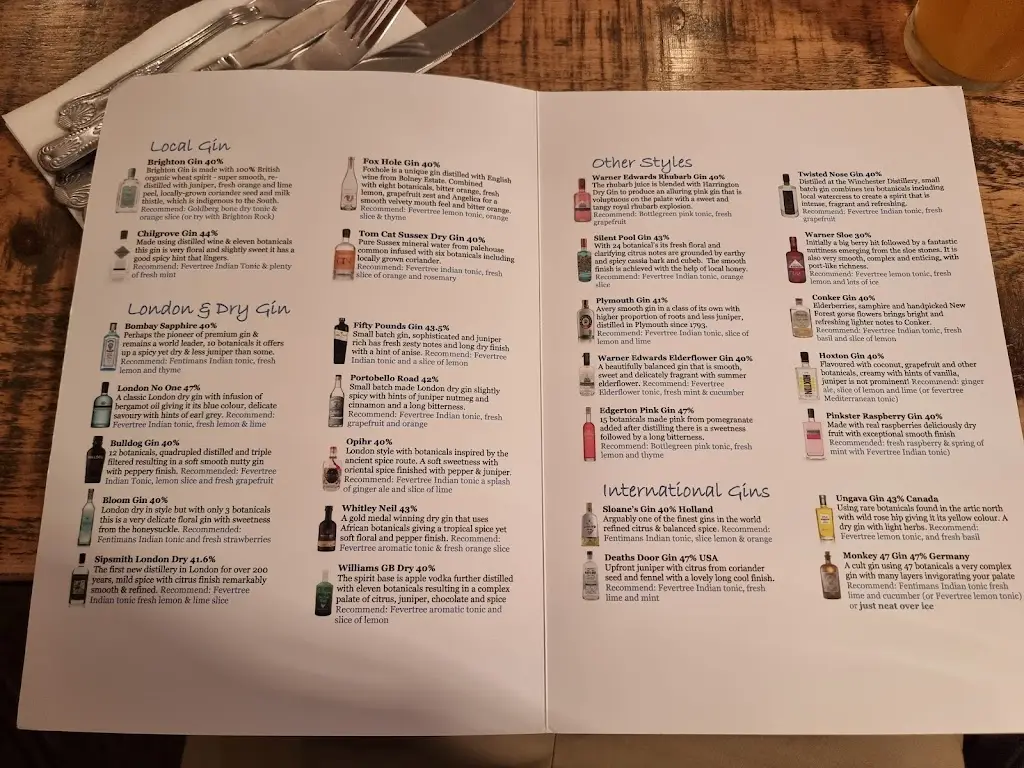 Local Gin
Brighton Gin 40%
Brighton Gin is made with 100% British
organic wheat spirit - super smooth, re-
distilled with juniper, fresh orange and lime
peel, locally-grown coriander seed and milk
thistle, which is indigenous to the South.
Recommend: Goldberg bone dry tonic &
orange slice (or try with Brighton Rock)
Chilgrove Gin 44%
Made using distilled wine & eleven botanicals
this gin is very floral and slightly sweet it has a
good spicy hint that lingers.
Recommend: Fevertree Indian Tonic & plenty
of fresh mint
Fox Hole Gin 40%
Foxhole is a unique gin distilled with English
wine from Bolney Estate. Combined
with eight botanicals, bitter orange, fresh
lemon, grapefruit zest and Angelica for a
smooth velvety mouth feel and bitter orange.
Recommend: Fevertree lemon tonic, orange
slice & thyme
Tom Cat Sussex Dry Gin 40%
Pure Sussex mineral water from palehouse
common infused with six botanicals including
locally grown coriander.
Recommend: Fevertree indian tonic, fresh
slice of orange and rosemary
London & Dry Gin
Bombay Sapphire 40%
Perhaps the pioneer of premium gin &
remains a world leader, 10 botanicals it offers
up a spicy yet dry & less juniper than some.
Recommend: Fentimans Indian tonic, fresh
lemon and thyme
London No One 47%
A classic London dry gin with infusion of
bergamot oil giving it its blue colour, delicate
savoury with hints of earl grey. Recommend:
Fevertree Indian tonic, fresh lemon & lime
Bulldog Gin 40%
12 botanicals, quadrupled distilled and triple
filtered resulting in a soft smooth nutty gin
with peppery finish. Recommend: Fevertree
Indian Tonic, lemon slice and fresh grapefruit
Bloom Gin 40%
London dry in style but with only 3 botanicals
this is a very delicate floral gin with sweetness
from the honeysuckle. Recommended:
Fentimans Indian tonic and fresh strawberries
Sipsmith London Dry 41.6%
The first new distillery in London for over 200
years, mild spice with citrus finish remarkably
smooth & refined. Recommend: Fevertree
Indian tonic fresh lemon & lime slice
Fifty Pounds Gin 43.5%
Small batch gin, sophisticated and juniper
rich has fresh zesty notes and long dry finish
with a hint of anise. Recommend: Fevertree
Indian tonic and a slice of lemon
Portobello Road 42%
Small batch made London dry gin slightly
spicy with hints of juniper nutmeg and
cinnamon and a long bitterness.
Recommend: Fevertree Indian tonic, fresh
grapefruit and orange
Opihr 40%
London style with botanicals inspired by the
ancient spice route. A soft sweetness with
oriental spice finished with pepper & juniper.
Recommend: Fevertree Indian tonic a splash
of ginger ale and slice of lime
Whitley Neil 43%
A gold medal winning dry gin that uses
African botanicals giving a tropical spice yet
soft floral and pepper finish. Recommend:
Fevertree aromatic tonic & fresh orange slice
Williams GB Dry 40%
The spirit base is apple vodka further distilled
with eleven botanicals resulting in a complex
palate of citrus, juniper, chocolate and spice
Recommend: Fevertree aromatic tonic and
slice of lemon
Other Styles
Warner Edwards Rhubarb Gin 40%
The rhubarb juice is blended with Harrington
Dry Gin to produce an alluring pink gin that is
voluptuous on the palate with a sweet and
tangy royal rhubarb explosion.
Recommend: Bottlegreen pink tonic, fresh
grapefruit
Silent Pool Gin 43%
With 24 botanical's its fresh floral and
clarifying citrus notes are grounded by earthy
and spicy cassia bark and cubeb. The smooth
finish is achieved with the help of local honey.
Recommend: Fevertree Indian tonic, orange
slice
Plymouth Gin 41%
Avery smooth gin in a class of its own with
higher proportion of roots and less juniper,
distilled in Plymouth since 1793.
Recommend: Fevertree Indian tonic, slice of
lemon and lime
Warner Edwards Elderflower Gin 40%
A beautifully balanced gin that is smooth,
sweet and delicately fragrant with summer
elderflower. Recommend: Fevertree
Elderflower tonic, fresh mint & cucumber
Edgerton Pink Gin 47%
15 botanicals made pink from pomegranate
added after distilling there is a sweetness
followed by a long bitterness.
Recommend: Bottlegreen pink tonic, fresh
lemon and thyme
Twisted Nose Gin 40%
Distilled at the Winchester Distillery, small
batch gin combines ten botanicals including
local watercress to create a spirit that is
intense, fragrant and refreshing.
Recommend: Fevertree Indian tonic, fresh
grapefruit
Warner Sloe 30%
Initially a big berry hit followed by a fantastic
nuttiness emerging from the sloe stones. It is
also very smooth, complex and enticing, with
port-like richness.
Recommend: Fevertree lemon tonic, fresh
lemon and lots of ice
Conker Gin 40%
Elderberries, samphire and handpicked New
Forest gorse flowers brings bright and
refreshing lighter notes to Conker.
Recommend: Fevertree Indian tonic, fresh
basil and slice of lemon
Hoxton Gin 40%
Flavoured with coconut, grapefruit and other
botanicals, creamy with hints of vanilla,
juniper is not prominent! Recommend: ginger
ale, slice of lemon and lime (or fevertree
Mediterranean tonic)
Pinkster Raspberry Gin 40%
Made with real raspberries deliciously dry
fruit with exceptional smooth finish
Recommended: fresh raspberry & spring of
mint with Fevertree Indian tonic)
International Gins
Sloane's Gin 40% Holland
Arguably one of the finest gins in the world
refined citrus & balanced spice. Recommend:
Fentimans Indian tonic, slice lemon & orange
Deaths Door Gin 47% USA
Upfront juniper with citrus from coriander
seed and fennel with a lovely long cool finish.
Recommend: Fevertree Indian tonic, fresh
lime and mint
Ungava Gin 43% Canada
Using rare botanicals found in the artic north
with wild rose hip giving its yellow colour. A
dry gin with light herbs. Recommend:
Fevertree lemon tonic, and fresh basil
Monkey 47 Gin 47% Germany
A cult gin using 47 botanicals a very complex
gin with many layers invigorating your palate
Recommend: Fentimans Indian tonic fresh
lime and cucumber (or Fevertree lemon tonic)
or just neat over ice